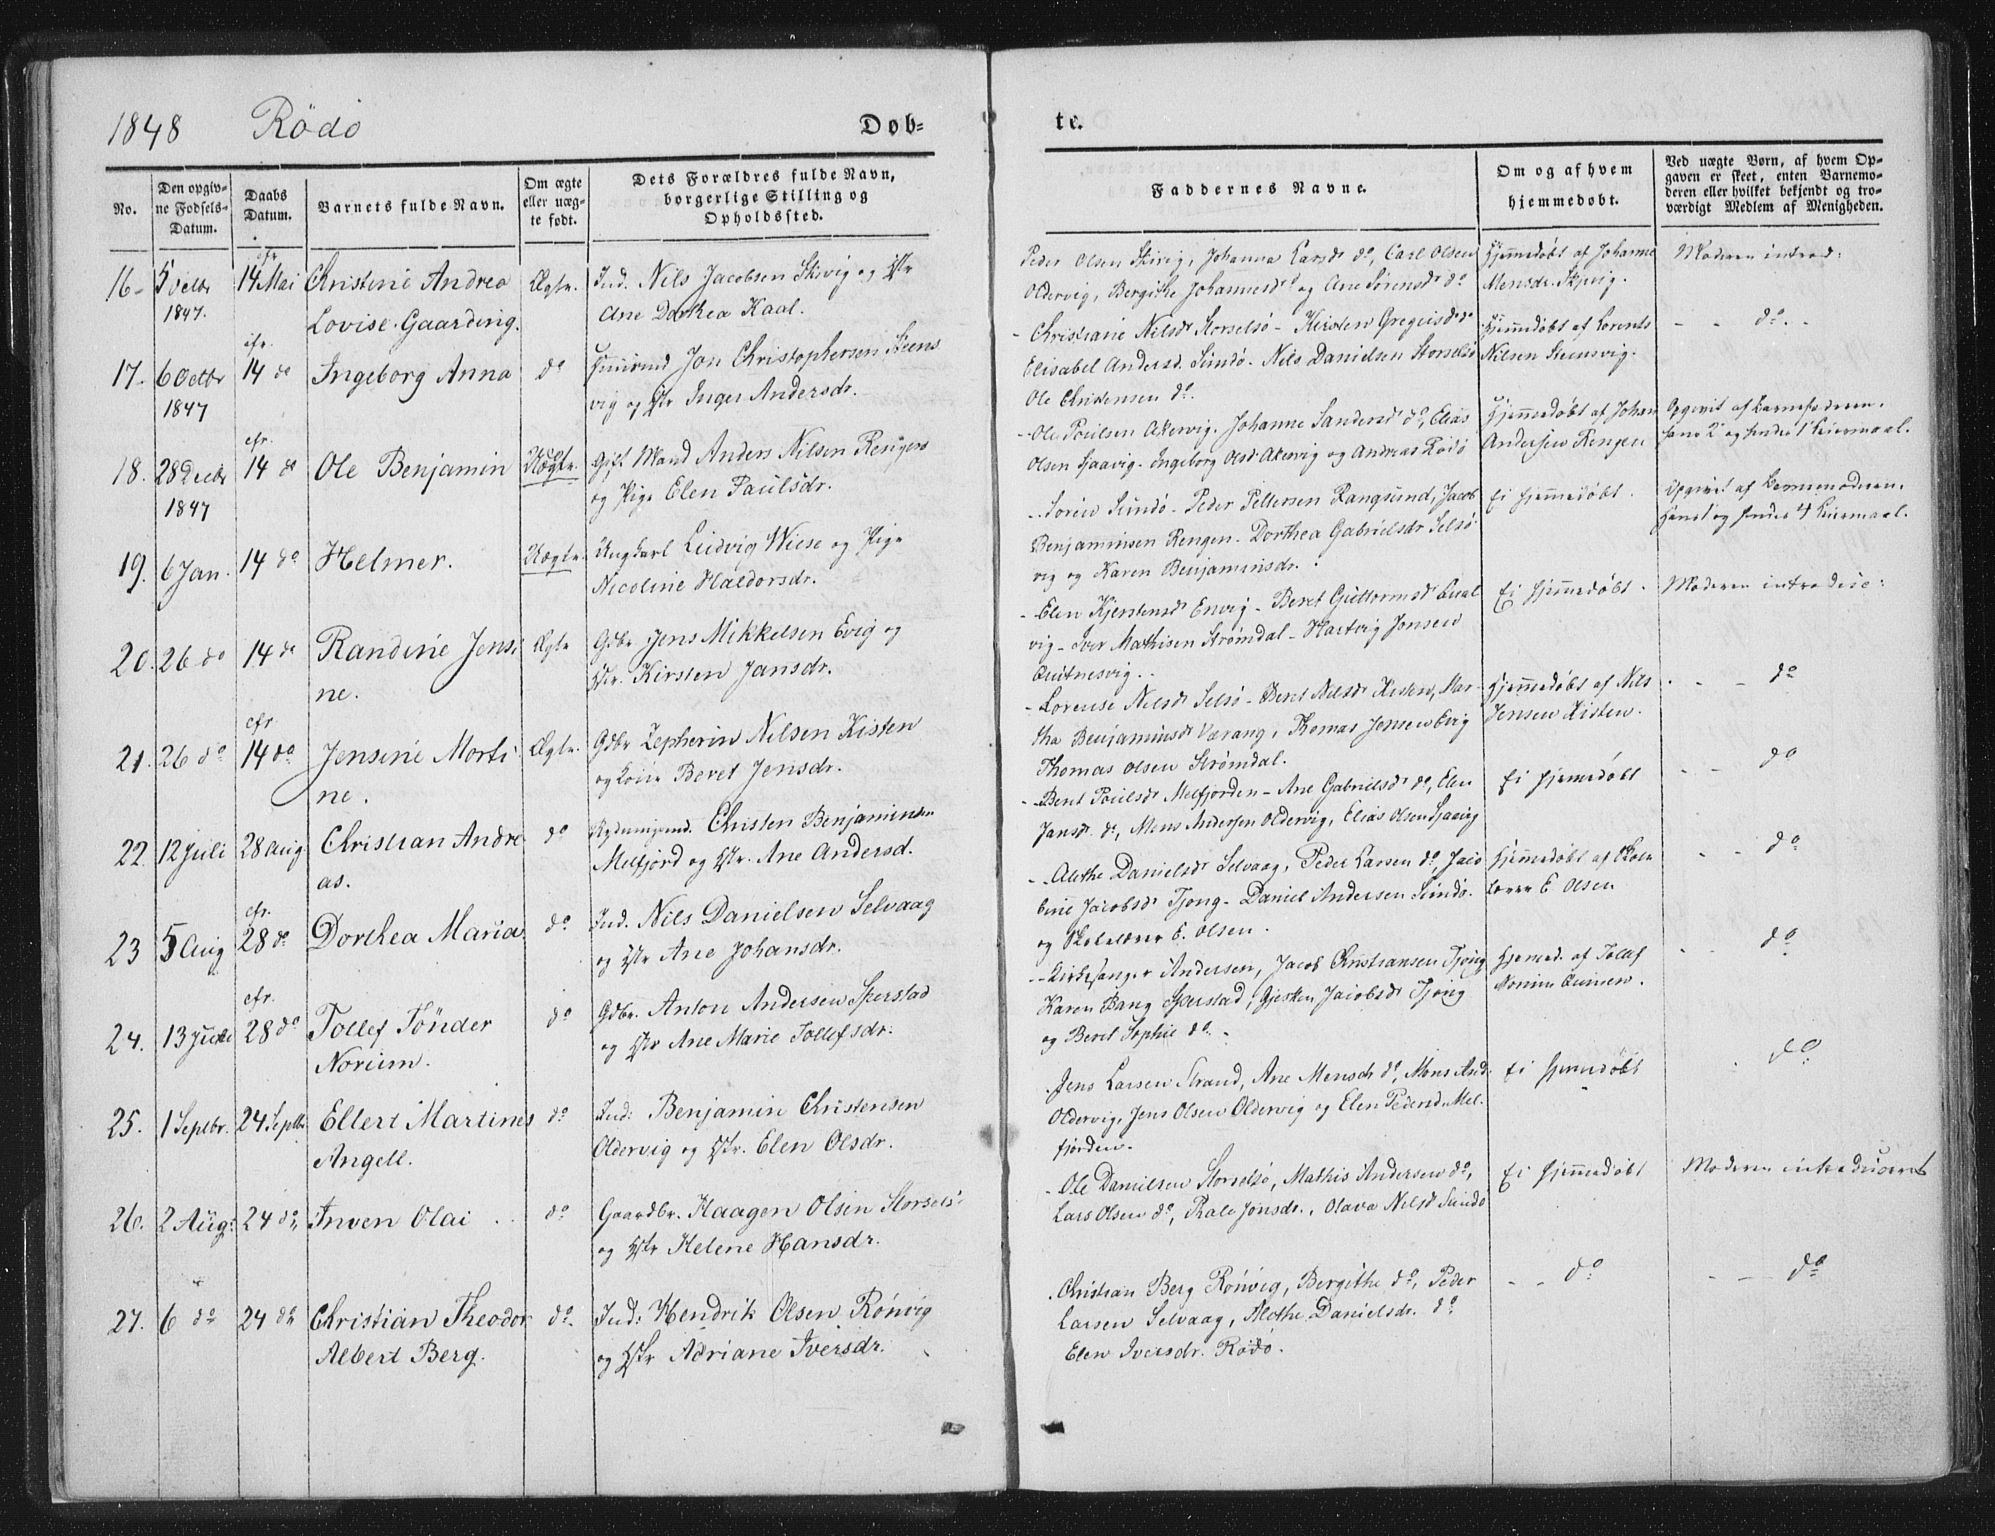 1848 Rödö Døb-
te.
No.
Den opgiv-
ne Fødsels-
Datum.
Daabs
Datum.
Barnets fulde Navn.
Om ægte
eller uæg-
te født.
Dets Forældres fulde Navn,
borgerlige Stilling og
Opholdssted.
Faddernes Navne.
Om og af hvem
hjemmedøbt.
Ved uægte Børn, af hvem Op-
gaven er skeet, enten Barnemo-
deren eller hvilket bekjendt og tro-
værdigt Medlem af Menigheden.
16 5 Octbr 1847. cfr. 14 Mai Christine Andrea
Lovise Gaarding. Ægte.
Ind. Nils Jacobsen Skivig og Hstr
Ane Dorthea Kaal.
Peder Olsen Skivig, Johanna Larsdr do, Carl Olsen
Oldervig, Bergithe Johannesdr og Ane Sörensdr do
Hjemmedøbt af Johanne
Mensdr. Skjevig.
Moderen introd:
17. 6 Octbr 1847 cfr. 14 do Ingeborg Anna do
Huusmd Jon Christophersen Steens
vig og Hstr Inger Andersdr.
- Christiane Nilsdr Storselsö - Kirsten Gregersdr do
Elisabet Andersd. Sundö - Nils Danielsen Storselsö
Ole Christensen do.
Hjemmedøbt af Lorents
Nilsen Steensvig.
- - do. -
18. 28 Decbr 1847 cfr. 14 do Ole Benjamin Uægte.
Gift Mand Anders Nilsen Rengen
og Pige Elen Paulsdr.
- Ole Poulsen Akervig. Johanne Sandersd do, Elias
Olsen Sjaavig. Ingeborg Olsd Akervig og Andreas Rödö
Hjemmedøbt af Johan
Andersen Rengen
Opgivet af Barnefaderen.
hans 2 og hendes 1 Leiermaal.
19. 6 Jan. 14 do Helmer. Uægte.
Ungkarl Ludvig Wiese og Pige
Nicoline Haldorsdr.
- Sören Sundö - Peder Pettersen Rangsund, Jacob
Benjaminsen Rengen - Dorthea Gabrielsdr Selsö
vig og Karen Benjaminsdr.
Ei hjemmedøbt.
Opgivet af Barnemoderen.
Hans 1 og hendes 4 Leiermaal.
20. 26 do 14 do Randine Jensi
ne. Ægte
Gdbr Jens Mikkelsen Evig og
Hstr. Kirsten Jansdr.
- Elen Kjerstensdr Envig - Beret Guttormsdr
vig - Iver Mathisen Strömdal - Hartvig Jonsen
Quitnesvig.
Ei hjemmedøbt.
Moderen introduc:
21. 26 do cfr. 14 do Jensine Morti
ne. Ægte.
Gdbr Zepherin Nilsen Kisten
og Kone Beret Jensdr.
- Lorense Nilsdr Selsö - Beret Nilsdr Kisten, Mar
tha Benjaminsdr Værang, Thomas Jonsen Evig
Thomas Olsen Strömdal.
Hjemmedøbt af Nils
Jensen Kisten.
- - do
22. 12 Juli 28 Aug Christian Andre
as. do
Rydningsmd. Christen Benjaminsen
Melfjord og Hstr. Ane Andersd.
- Beret Poulsdr Melfjorden - Ane Gabrielsdr do, Elen
Jansd. do, Mons Andersen Oldervig, Elias Olsen Sjaavig
Ei hjemmedøbt
- - do
23 5 Aug cfr. 28 do Dorthea Maria do
Ind. Nils Danielsen Selvaag
og Hstr Ane Johansdr.
- Alethe Danielsdr Selvaag, Peder Larsen do, Jaco
bine Jacobsdr Tjong - Daniel Andersen Sundö
og Skolelærer E. Olsen.
Hjemmedøbt af Skole
lærer E Olsen
- - do
24. 13 cfr. 28 do Tollef Tönder
Norum. do
Gdbr. Anton Andersen Sperstad
og Hstr Ane Marie Tollefsdr.
- Kirkesanger Andersen, Jacob Christiansen Tjong
Karen Bang Sperstad, Gjertru Jacobsdr Tjong
og Beret Sophie do -
Hjemmed. af Tollef
- do
25. 1 Septbr. 24 Septbr Ellert Martines
Angell. do
Ind: Benjamin Christensen
Oldervig og Hstr. Elen Olsdr.
Jens Larsen Strand, Ane Mensdr do, Mons And.
Oldervig, Jens Olsen Oldervig og Elen Pedersd. Mel-
fjorden.
Ei hjemmedøbt
do
26. 2 Aug: 24 do, Inven Olai do
Gaardbr. Haagen Olsen Storsels
og Hstr Helene Hansdr.
- Ole Danielsen Storselsö, Mathis Andersen do,
Lars Olsen do, Rale Jonsdr., Olava Nilsd Sundö
Ei hjemmedøbt
Moderen introduceret
27. 6 do 24 do Christian Theodor
Albert Berg. do
Ind: Hendrik Olsen Rönvig
og Hstr Adriane Iversdr.
Christian Berg Rönvig, Bergithe do, Peder
Larsen Selvaag, Alethe Danielsdr. do
Elen Iversdr. Rödö.
- - do
- - do